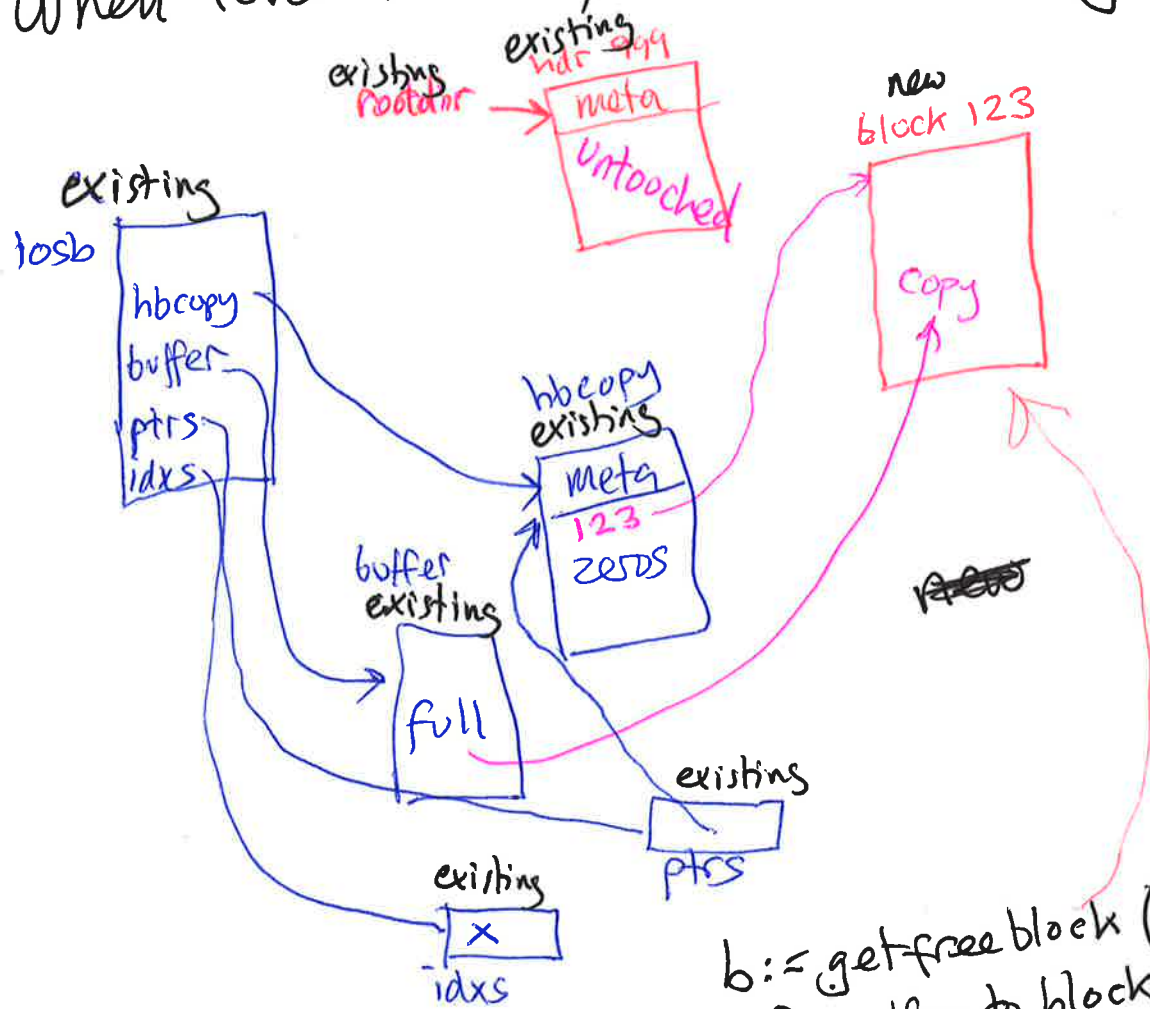 When
existing
existing
hdr 999
rootdnr
meta
untooched
new
block 123
copy
existing
iosb
hbcopy
buffer
ptrs
idxs
hbcopy
existing
meta
123
zeros
buffer
existing
full
new
existing
ptrs
existing
x
idxs
b:= getfreeblock (
to block